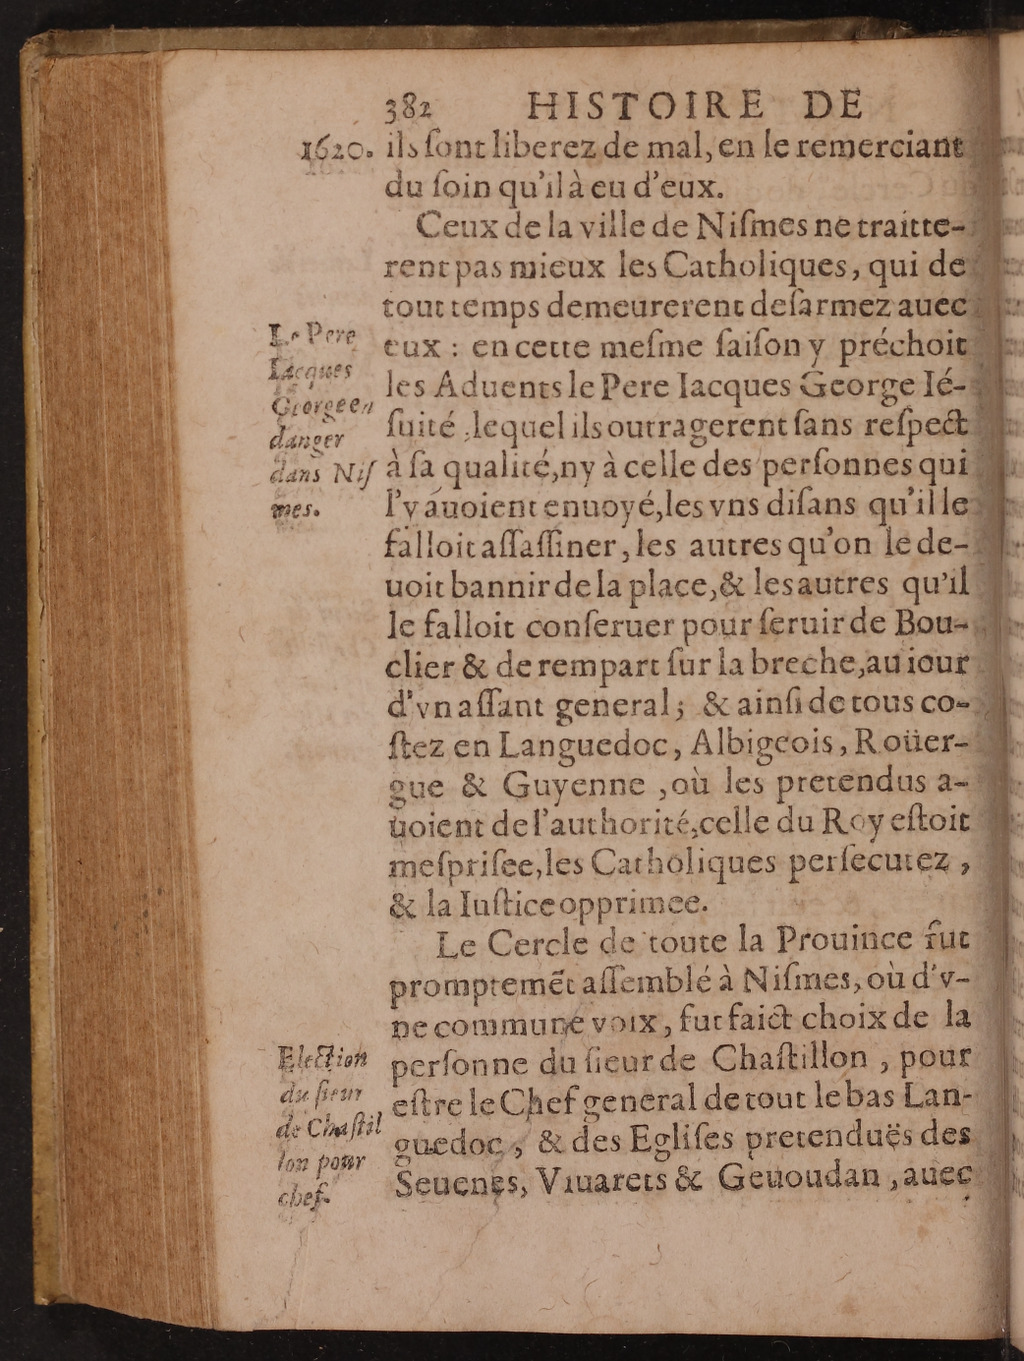 382 HISTOIRE DE
1620. ils ſont liberez de mal, en le remerciant
du ſoin qu'il à eu d'eux.
Ceux de la ville de Niſmes ne traitte-
rent pas mieux les Catholiques, qui de
tout temps demeurerent deſarmez auec
eux : en cette meſme ſaiſon y préchoit
les Aduents le Pere Iacques George Ié-
ſuité, lequel ils outragerent ſans reſpect
à ſa qualité, ny à celle des perſonnes qui
l'y auoient enuoyé, les vns diſans qu'il le
falloit aſſaſſiner, les autres qu'on le de-
uoit bannir de la place, & les autres qu'il
le falloit conſeruer pour ſeruir de Bou-
clier & de rempart ſur la breche, au iour
d'vn aſſant general; & ainſi de tous co-
ſtez en Languedoc, Albigeois, Roüer-
gue & Guyenne, où les pretendus a-
uoient de l'authorité, celle du Roy eſtoit
meſpriſee, les Catholiques perſecutez,
& la Iuſtice opprimee.
Le Cercle de toute la Prouince fut
promptemẽt aſſemblé à Niſmes, où d'v-
ne commune voix, fut faict choix de la
perſonne du ſieur de Chaſtillon, pour
eſtre le Chef general de tout le bas Lan-
guedoc, & des Egliſes pretenduës des
Seuenes, Viuarets & Geuoudan, auec
Le Pere
Iacques
George en
danger
dans Niſ
mes.
Election
du ſieur
de Chaſtil
lon pour
chef.